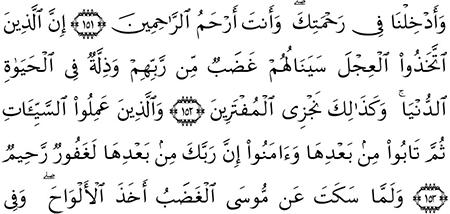 وَأَدْخِلْنَا فِى رَحْمَتِكَ ۖ وَأَنتَ أَرْحَمُ ٱلرَّٰحِمِينَ ﴿١٥١﴾ إِنَّ ٱلَّذِينَ
ٱتَّخَذُوا۟ ٱلْعِجْلَ سَيَنَالُهُمْ غَضَبٌ مِّن رَّبِّهِمْ وَذِلَّةٌ فِى ٱلْحَيَوٰةِ
ٱلدُّنْيَا ۚ وَكَذَٰلِكَ نَجْزِى ٱلْمُفْتَرِينَ ﴿١٥٢﴾ وَٱلَّذِينَ عَمِلُوا۟ ٱلسَّيِّـَٔاتِ
ثُمَّ تَابُوا۟ مِنۢ بَعْدِهَا وَءَامَنُوٓا۟ إِنَّ رَبَّكَ مِنۢ بَعْدِهَا لَغَفُورٌ رَّحِيمٌ
﴿١٥٣﴾ وَلَمَّا سَكَتَ عَن مُّوسَى ٱلْغَضَبُ أَخَذَ ٱلْأَلْوَاحَ ۖ وَفِى